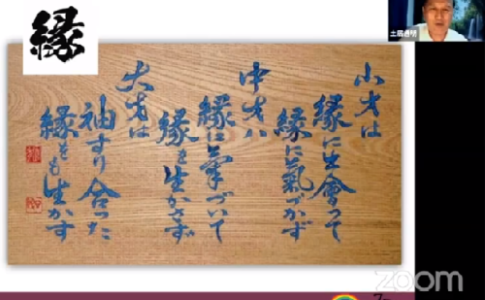 縁
小才は
縁に出會って
縁に氣づかず
中才ハ
縁に氣づいて
縁を生かさず
大才は
袖すり合った
縁をも生かす
zoom